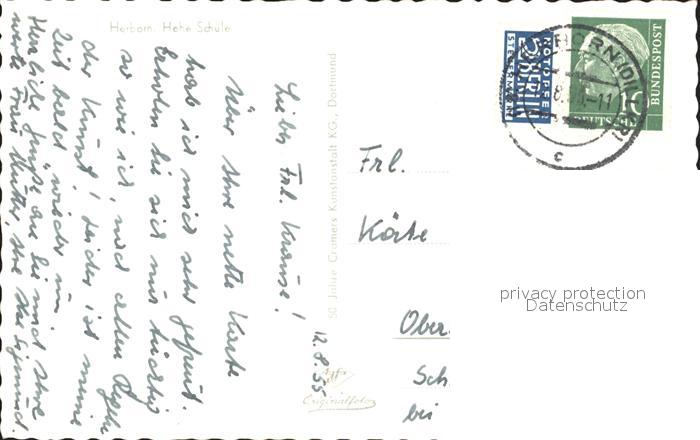 Herborn. Hohe Schule
12.8.55
Liebes Frl. Krause!
Über Ihre nette Karte
hab ich mich sehr gefreut.
Erholen Sie sich nur tüchtig
so wie ich, nach allen Regeln
der Kunst! Leider ist meine
Zeit bald wieder um.
Herzliche Grüße an Sie und Ihre
werte Frau Mutter, Ihre
50 Jahre Cramers Kunstanstalt KG., Dortmund
Originalfoto
Frl.
Käte
Ober
Sch
bei
NOTOPFER
2 BERLIN
STEUERMARKE
DEUTSCHE
BUNDESPOST
10
c
privacy protection
Datenschutz